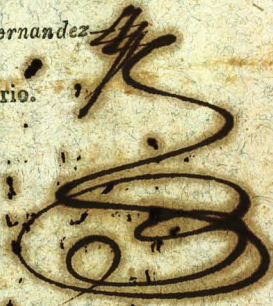 ernandez
rio.